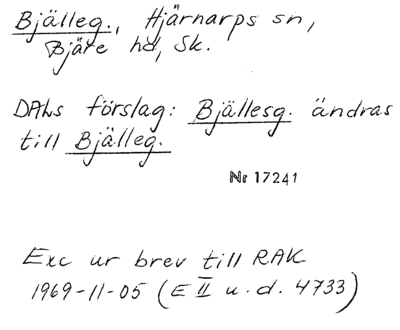 Bjälleg., Hjärnarps sn,
Bjäre hd, Sk.
DALs förslag: Bjällesg. ändras
till Bjälleg.
Nr 17241
Exc ur brev till RAK
1969-11-05 (E II u.d. 4733)